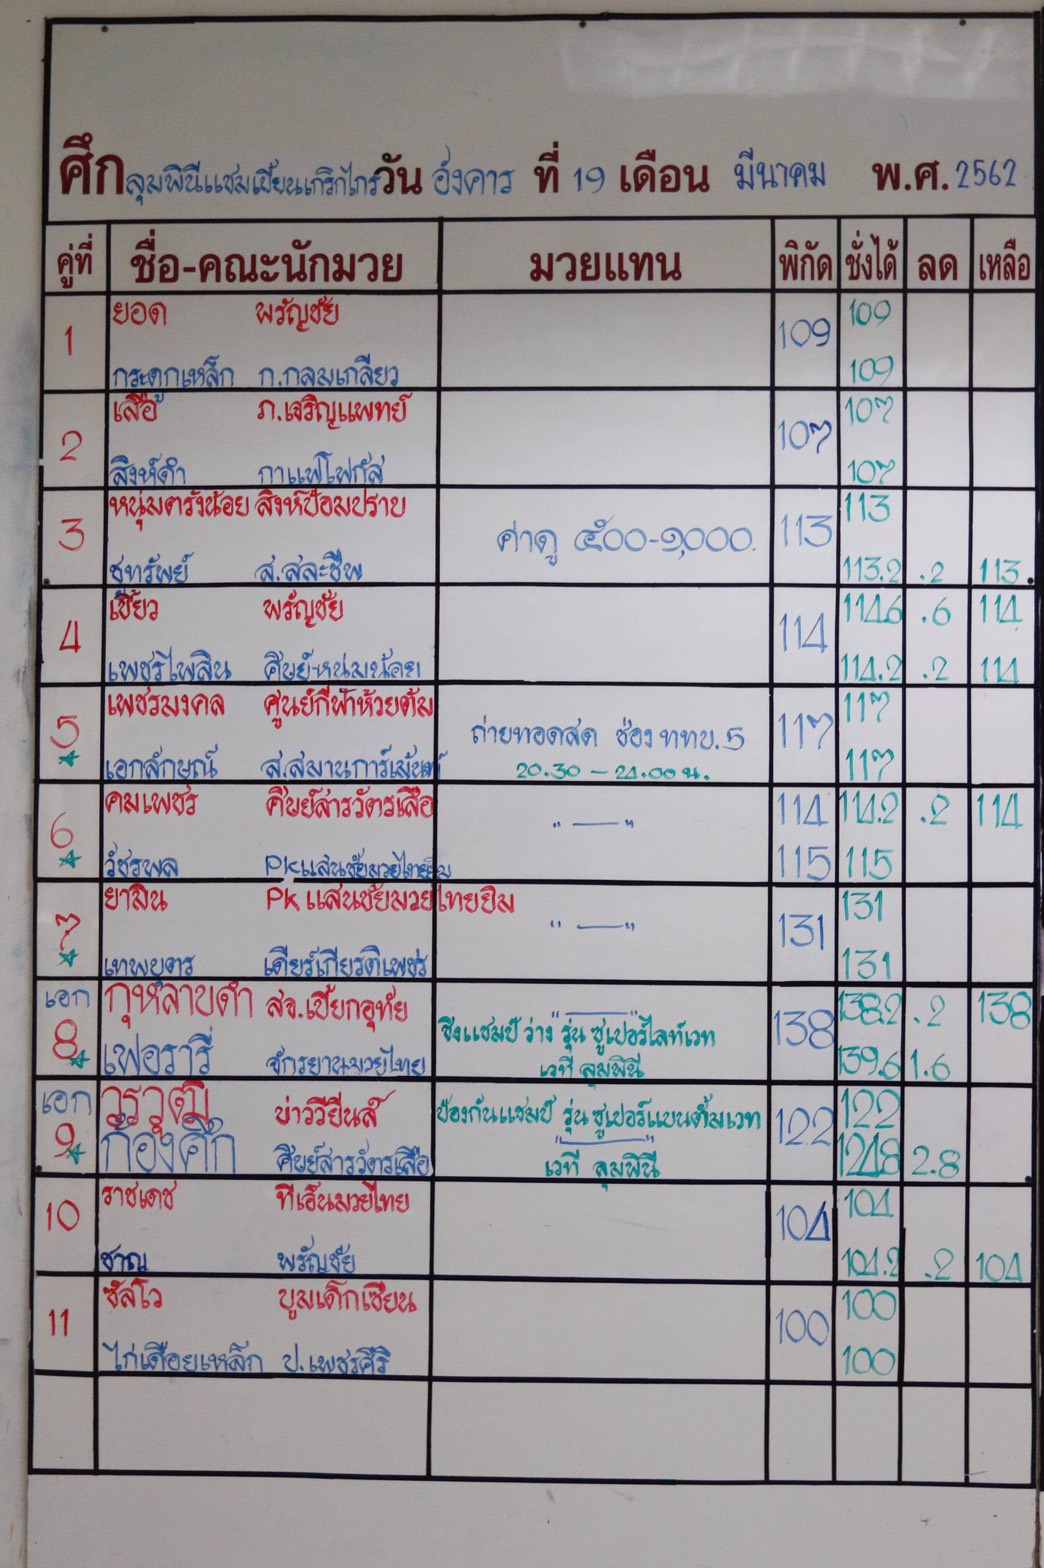 ศึก ลุมพินีแชมเปี้ยนเกริกไกร วัน อังคาร ที่ 19 เดือน มีนาคม พ.ศ. 2562
คู่ที่ ชื่อ-คณะนักมวย มวยแทน พิกัด ชั่งได้ ลด เหลือ
ยอด พรัญชัย 109
1 109
กระดูกเหล็ก ก.กลมเกลียว 109
เสือ ภ.เจริญแพทย์ 107
2 107
สิงห์ดำ กาแฟโฟกัส 107
หนุ่มตรังน้อย สิงห์ป้อมปราบ 113
3 ค่าดู ๕๐๐-๑,๐๐๐. 113
ชูทรัพย์ ส.สละชีพ 113.2 .2 113
เขี้ยว พรัญชัย 114.6 .6 114
4 114
เพชรไพลิน ศิษย์หนุ่มน้อย 114.2 .2 114
เพชรมงคล ศูนย์กีฬาห้วยต้ม 117
5 ถ่ายทอดสด ช่อง ททบ.5 117
เอกลักษณ์ ส.สมานการ์เม้นท์ 20.30 - 21.00 น. 117
คมเพชร ศิษย์สารวัตรเสือ 114 114.2 .2 114
6 " — "
วัชรพล Pkแสนชัยมวยไทยยิม 115 115
ยามิน Pk แสนชัยมวยไทยยิม 131
7 " — " 131
เทพบุตร เดียร์เกียรติเพชร 131
เอก กุหลาบดำ สจ.เปี๊ยกอุทัย 138.2 .2 138
8 ชิงแชมป์ ว่าง รุ่น ซูเปอร์ไลท์เวท 138
เฟอรารี่ จักรยานมวยไทย เวที ลุมพินี 139.6 1.6
เอก วรวุฒิ บ่าววีปืนส์ ป้องกันแชมป์ รุ่น ซูเปอร์แบนตั้มเวท 122
9 122
ก้องศึก ศิษย์สารวัตรเสือ เวที ลุมพินี 124.8 2.8
ราชเดช ทีเอ็นมวยไทย 104
10 104
ชาญ พรัญชัย 104.2 .2 104
ซัลโว บูมเด็กเซียน 100
11 100
ไก่เดือยเหล็ก ป.เพชรศิริ 100